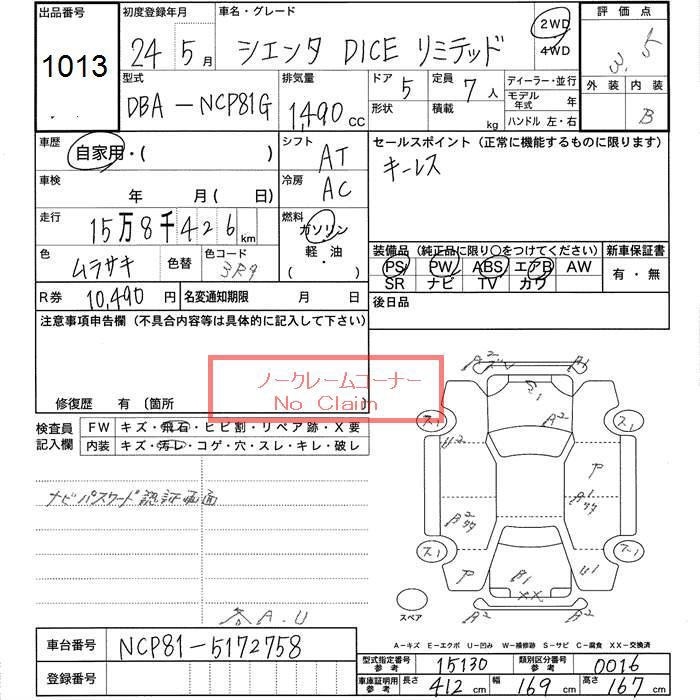 出品番号 初度登録年月 車名・グレード 評価点
1013 24年5月 シエンタ DICE リミテッド 2WD 4WD 3.5
型式 排気量 ドア 5 定員 7人 ディーラー・並行 外装 内装
DBA-NCP81G 1,490cc 形状 積載 kg モデル年式 年 B
ハンドル 左・右
車歴 自家用・( ) シフト AT セールスポイント(正常に機能するものに限ります)
車検 年 月( 日) 冷房 AC キーレス
走行 15万8千426km 燃料 ガソリン 軽・油 ( )
色 ムラサキ 色替 色コード 3R9 装備品(純正品に限り○をつけてください) 新車保証書
PS PW ABS エアB AW 有・無
SR ナビ TV カワ
R券 10,490円 名変通知期限 月 日 後日品
注意事項申告欄(不具合内容等は具体的に記入して下さい)
ノークレームコーナー
No Claim
修復歴 有 〔箇所
検査員記入欄 FW キズ・飛石・ヒビ割・リペア跡・X要
内装 キズ・汚レ・コゲ・穴・スレ・キレ・破レ
ナビパスワード認証画面
各A.U
A2 A1
S1
A2
ス1 ス1
U2
ヤ
B2 B1
ス1 ス1
ヤ B1 U1
XX
A2 A2
スペア
A-キズ E-エクボ U-凹み W-補修跡 S-サビ C-腐食 XX-交換済
車台番号 NCP81-5172758
型式指定番号参考 15130 類別区分番号参考 0016
登録番号
車庫証明用参考 長さ 412cm 幅 169cm 高さ 167cm